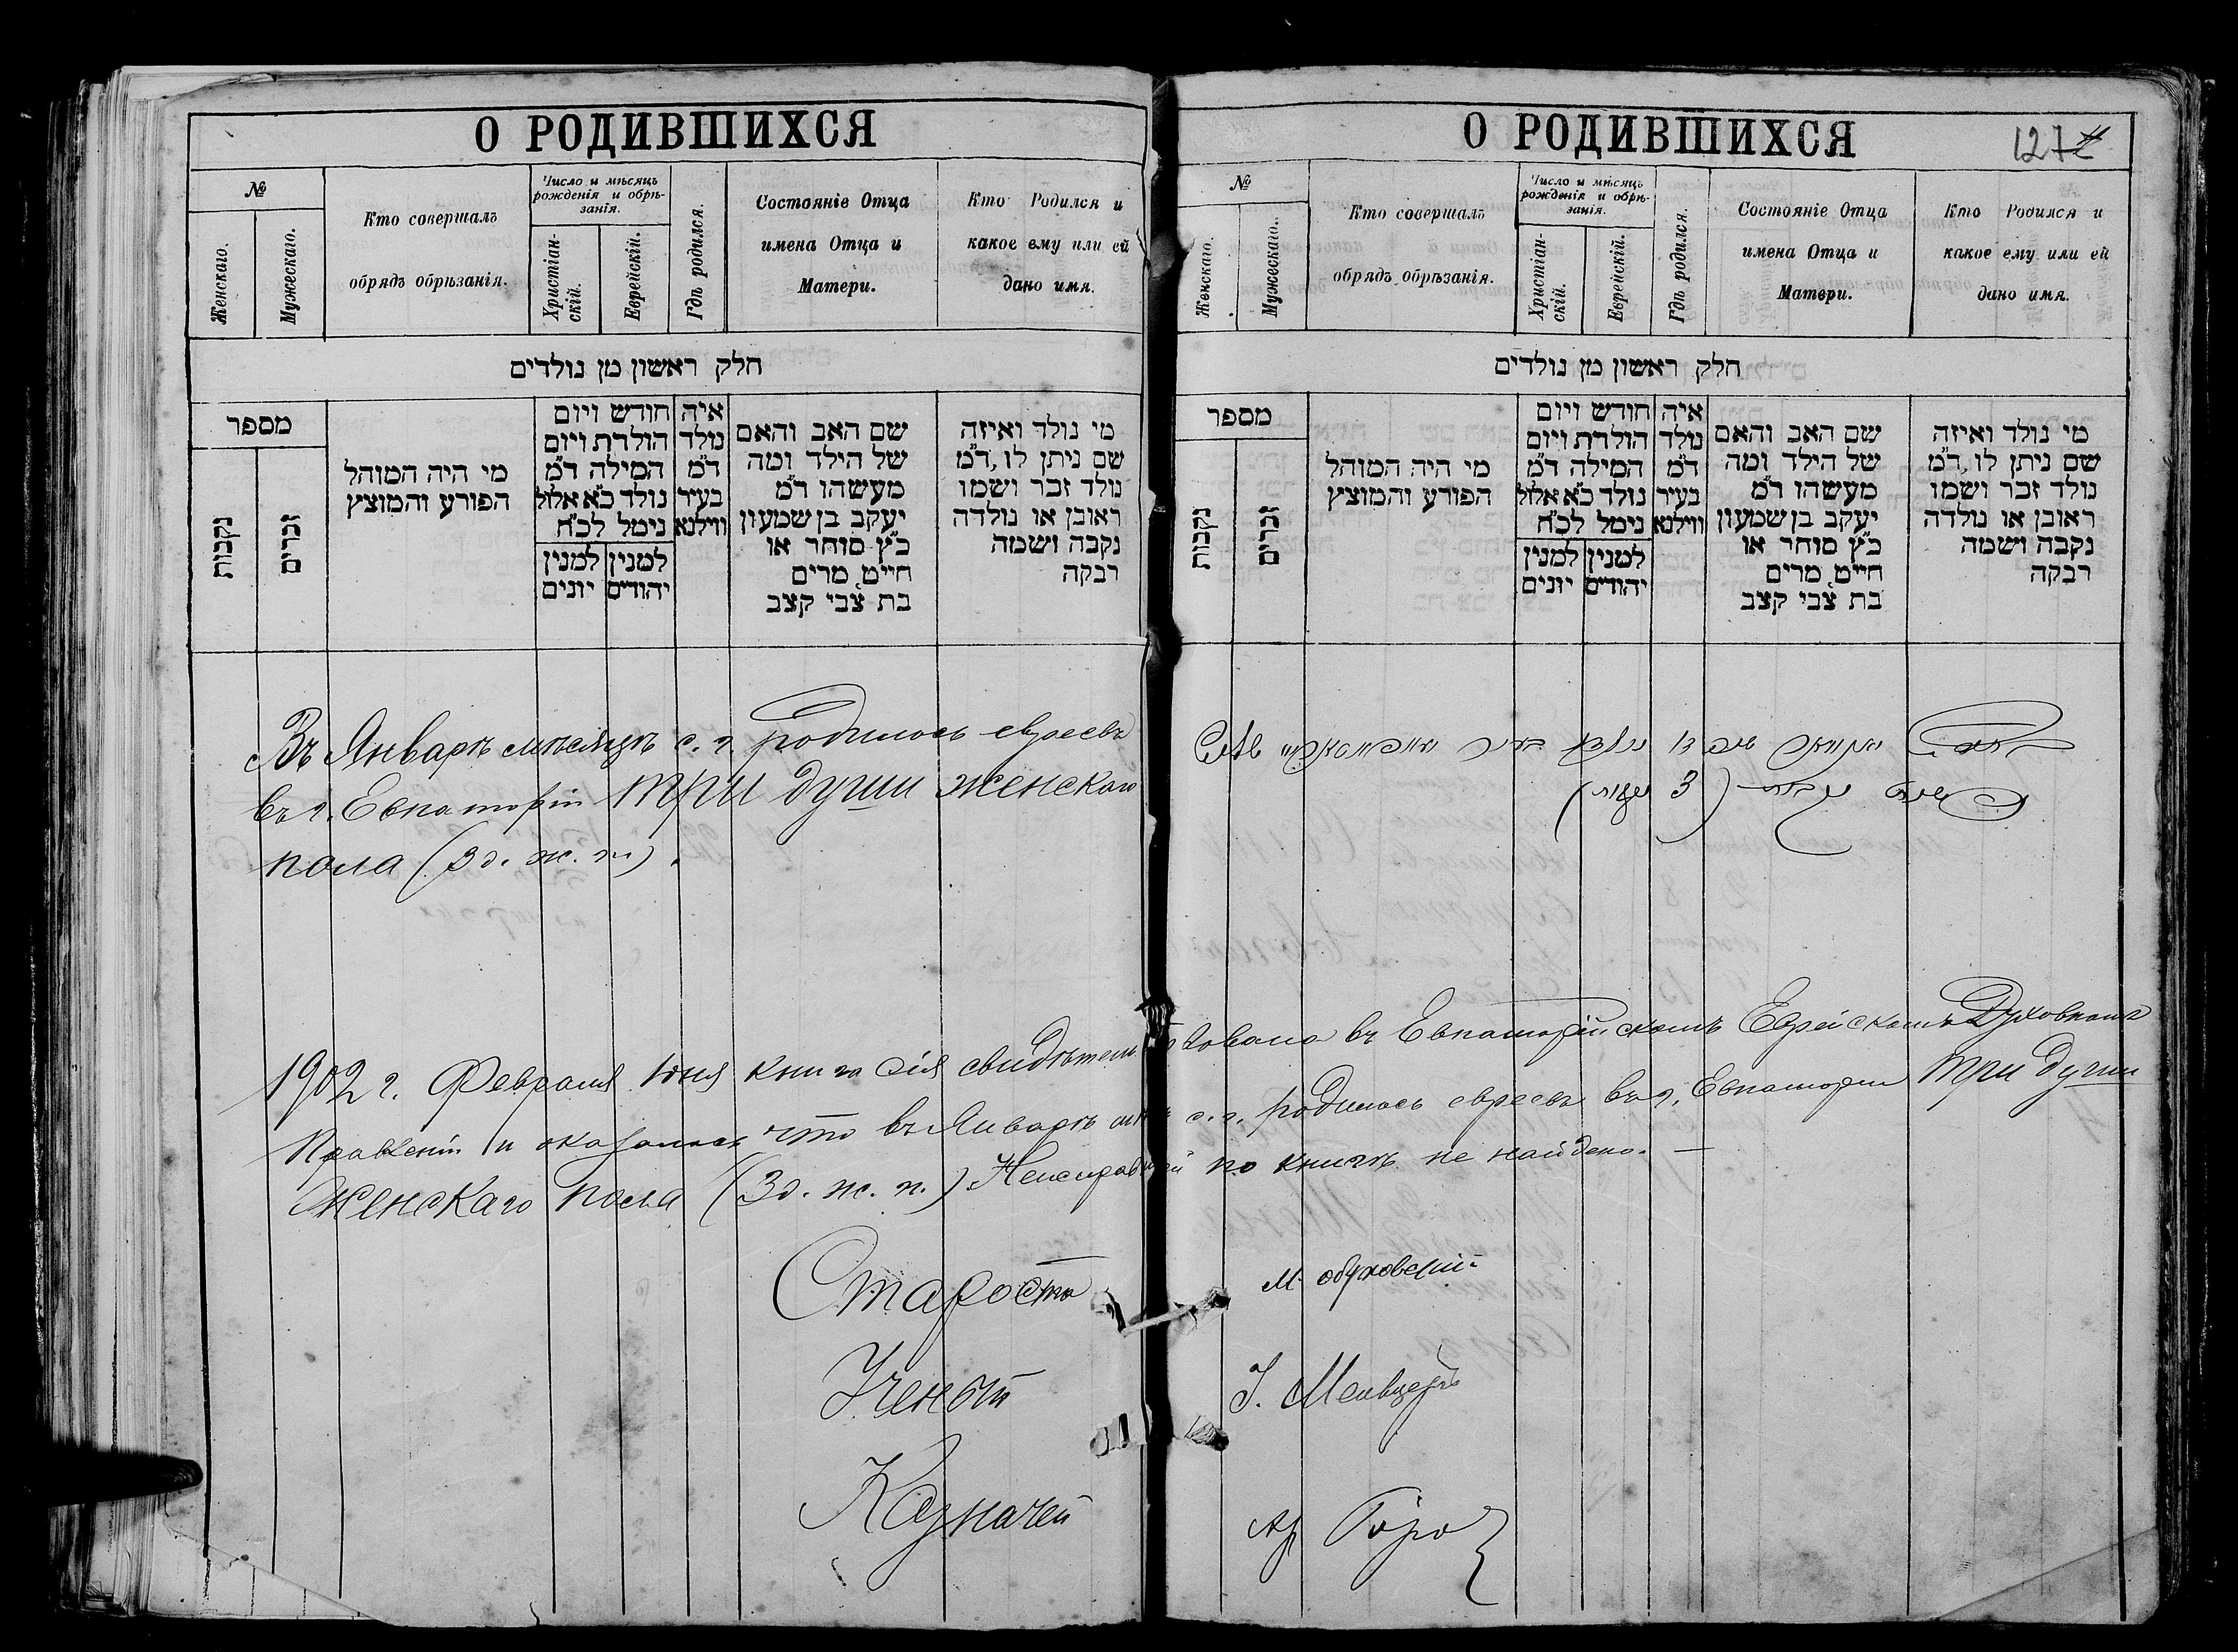 О РОДИВШИХСЯ
№
Женскаго.
Мужескаго.
Кто совершалъ
обрядъ обрѣзанія.
Число и мѣсяцъ
рожденія и обрѣ-
занія.
Христіан-
скій.
Еврейскій.
Гдѣ родился.
Состояніе Отца
имена Отца и
Матери.
Кто Родился и
какое ему или ей
дано имя.
חלק ראשון מן נולדים
מספר
נקבות
זכרים
מי היה המוהל
הפורע והמוצץ
חודש ויום
הולדת ויום
המילה ד"מ
נולד כ"א אלול
נימל לכ"ח
למנין יהודים
למנין יונים
איה
נולד
ד"מ
בעיר
ווילנא
שם האב והאם
של הילד ומה
מעשהו ד"מ
יעקב בן שמעון
כ"ץ סוחר או
חייט, מרים
בת צבי קצב
מי נולד ואיזה
שם ניתן לו, ד"מ
נולד זכר ושמו
ראובן או נולדה
נקבה ושמה
רבקה
Въ Январѣ мѣсяцѣ с. г. родилось евреевъ
въ г. Евпаторіи три души женскаго
пола (3 д. ж. п.).
О РОДИВШИХСЯ
127
№
Женскаго.
Мужескаго.
Кто совершалъ
обрядъ обрѣзанія.
Число и мѣсяцъ
рожденія и обрѣ-
занія.
Христіан-
скій.
Еврейскій.
Гдѣ родился.
Состояніе Отца
имена Отца и
Матери.
Кто Родился и
какое ему или ей
дано имя.
חלק ראשון מן נולדים
מספר
נקבות
זכרים
מי היה המוהל
הפורע והמוצץ
חודש ויום
הולדת ויום
המילה ד"מ
נולד כ"א אלול
נימל לכ"ח
למנין יהודים
למנין יונים
איה
נולד
ד"מ
בעיר
ווילנא
שם האב והאם
של הילד ומה
מעשהו ד"מ
יעקב בן שמעון
כ"ץ סוחר או
חייט, מרים
בת צבי קצב
מי נולד ואיזה
שם ניתן לו, ד"מ
נולד זכר ושמו
ראובן או נולדה
נקבה ושמה
רבקה
1902 г. Февраля дня книга сія свидѣтельствована въ Евпаторійскомъ Еврейскомъ Духовномъ
Правленіи и оказалось что въ Январѣ мѣс с. г. родилось евреевъ въ г. Евпаторіи три души
женскаго пола (3 д. ж. п.) Неисправностей по книгѣ не найдено. —
Староста М. Обуховскій
Ученый
Казначей